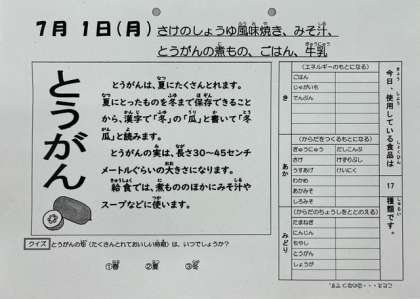 7月 1日(月) さけのしょうゆ風味焼き、みそ汁、
とうがんの煮もの、ごはん、牛乳
とうがん
とうがんは、夏にたくさんとれます。
夏にとったものを冬まで保存できること
から、漢字で「冬」の「瓜」と書いて「冬
瓜」と読みます。
とうがんの実は、長さ30～45センチ
メートルぐらいの大きさになります。
給食では、煮もののほかにみそ汁や
スープなどに使います。
クイズ とうがんの旬(たくさんとれておいしい時期)は、いつでしょうか?
①春 ②夏 ③冬
今日、使用している食品は 17 種類です。
き
(エネルギーのもとになる)
ごはん
じゃがいも
でんぷん
あか
(からだをつくるもとになる)
ぎゅうにゅう だしこんぶ
さけ けずりぶし
うすあげ けいにく
わかめ
あかみそ
しろみそ
みどり
(からだのちょうしをととのえる)
たまねぎ
にんじん
もやし
とうがん
しょうが